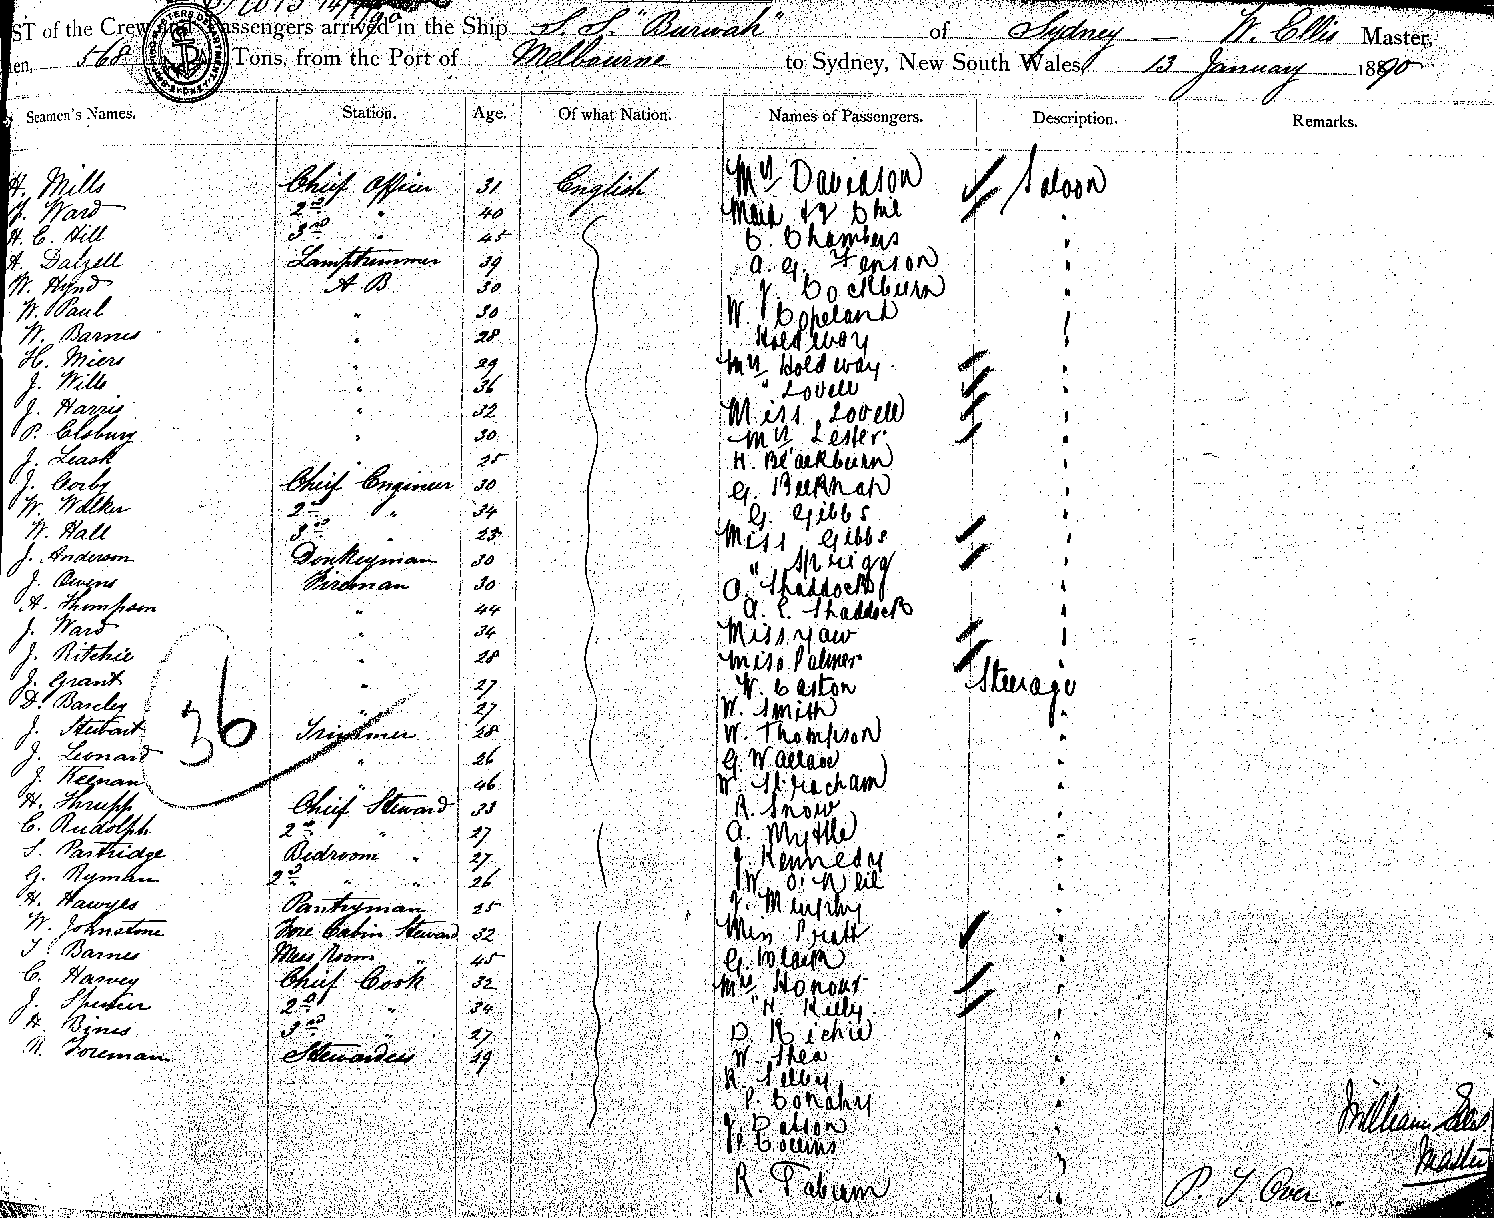 ST of the Crew and Passengers arrived in the Ship S. S. "Burwah" of Sydney — W. Ellis Master,
en, 568 Tons, from the Port of Melbourne to Sydney, New South Wales, 13 January 1890
Seamen's Names. Station. Age. Of what Nation. Names of Passengers. Description. Remarks.
H. Mills Chief Officer 31 English Mrs Davidson Saloon
J. Ward 2nd " 40 Maid & 2 Chil "
H. C. Hill 3rd " 45 C. Chambers "
A. Dalzell Lamptrimmer 39 A. G. Fenson "
W. Hynd A B 30 J. Cockburn "
W. Paul " 30 W. Copeland "
W. Barnes " 28 Holdway "
H. Miers " 29 Mrs Holdway "
J. Wills " 36 " Lovell "
J. Harris " 32 Miss Lovell "
P. Elsbury " 30 Mrs Lester "
J. Leask 25 H. Blackburn "
J. Corby Cheif Engineer 30 G. Beeknan "
W. Walker 2nd " 34 G. Gibbs "
W. Hall 3rd " 25 Miss Gibbs "
J. Anderson Donkeyman 30 " Sprigg "
J. Owens Fireman 30 A. Shaddock "
A. Thompson " 44 A. E. Shaddock "
J. Ward " 34 Miss Yaw "
J. Ritchie " 28 Miss Palmer "
J. Grant " 27 W. Easton Steerage
D. Barclay " 27 W. Smith "
J. Stewart Trimmer 28 W. Thompson "
J. Leonard " 26 G. Wallace "
J. Keenan " 46 W. Stracham "
H. Thrupp Chief Steward 33 R. Snow "
C. Rudolph 2nd " 27 A. Myttle "
S. Partridge Bedroom " 27 J. Kennedy "
G. Ryman 2nd " " 26 W. O. Neil "
H. Hawyes Pantryman 25 J. Murphy "
W. Johnstone Fore Cabin Steward 32 Mrs Pratt "
T. Barnes Mess Room " 45 G. Clark "
C. Harvey Chief Cook 32 Mrs Honour "
J. Spencer 2nd " 34 " H. Kelly "
A. Bines 3rd " 27 D. Richie "
N. Foreman Stewardess 49 W. Shea "
R. Selby "
P. Conahy "
J. Batson "
J. Collins "
R. Fabian "
36
William Ellis
Master
P. T. Over